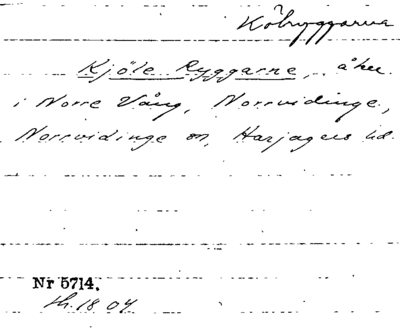 Köbryggarna
Kjöle Ryggarne, åker
i Norre Vång, Norrvidinge,
Norrvidinge sn, Harjagers hd.
Nr 5714.
Sk. 18 04